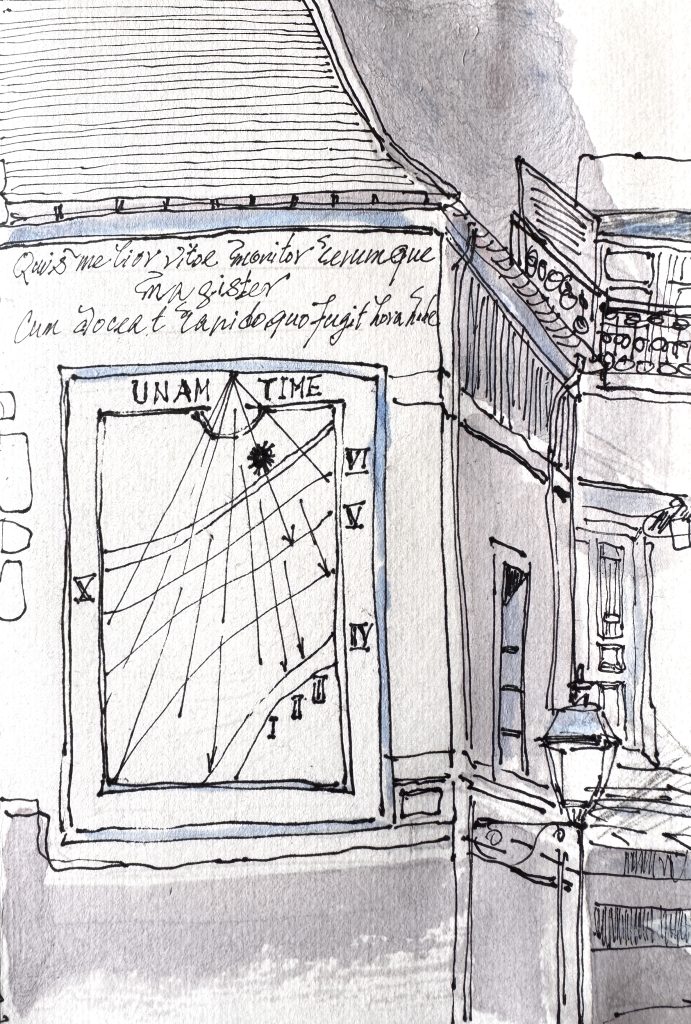 Quis melior vitoe monitor rerumque
magister
Cum doceat rapido quo fugit hora
UNAM TIME
VI
V
X
IV
III
II
I